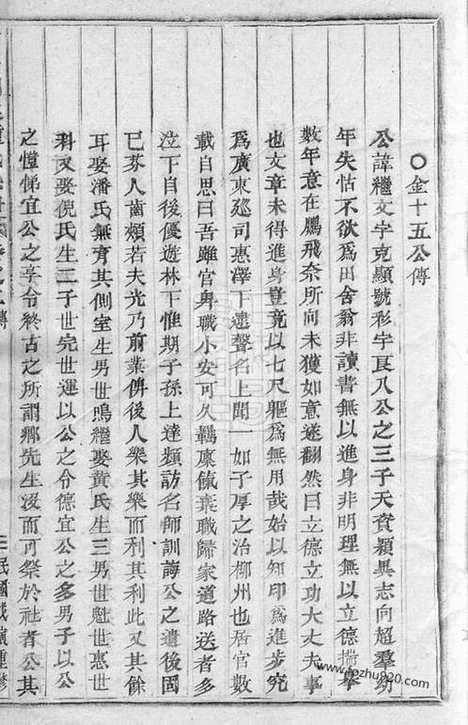 〇金十五公傳
公諱繼文字克顯號彩宇良八公之三子天資穎異志向超羣幼
年失怙不欲爲田舍翁非讀書無以進身非明理無以立德揣摹
數年意在鵬飛奈所向未獲如意遂翻然曰立德立功大丈夫事
也文章未得進身豈竟以七尺軀爲無用哉始以知印爲進步究
爲廣東廵司惠澤下逮聲名上聞一如子厚之治柳州也居官數
載自思曰吾雖官卑職小安可久羈廩餼棄職歸家道路送者多
泣下自後優遊林下惟期子孫上達頻訪名師訓誨公之遺後固
已芬人齒頰若夫光乃前業俾後人樂其樂而利其利此又其餘
耳娶潘氏無育其側室生男世鳴繼娶黃氏生三男世魁世惠世
科又娶倪氏生二子世完世運以公之令德宜公之多男子以公
之愷悌宜公之享令終古之所謂鄉先生沒而可祭於社者公其
民國 重修
www.fozhu920.com